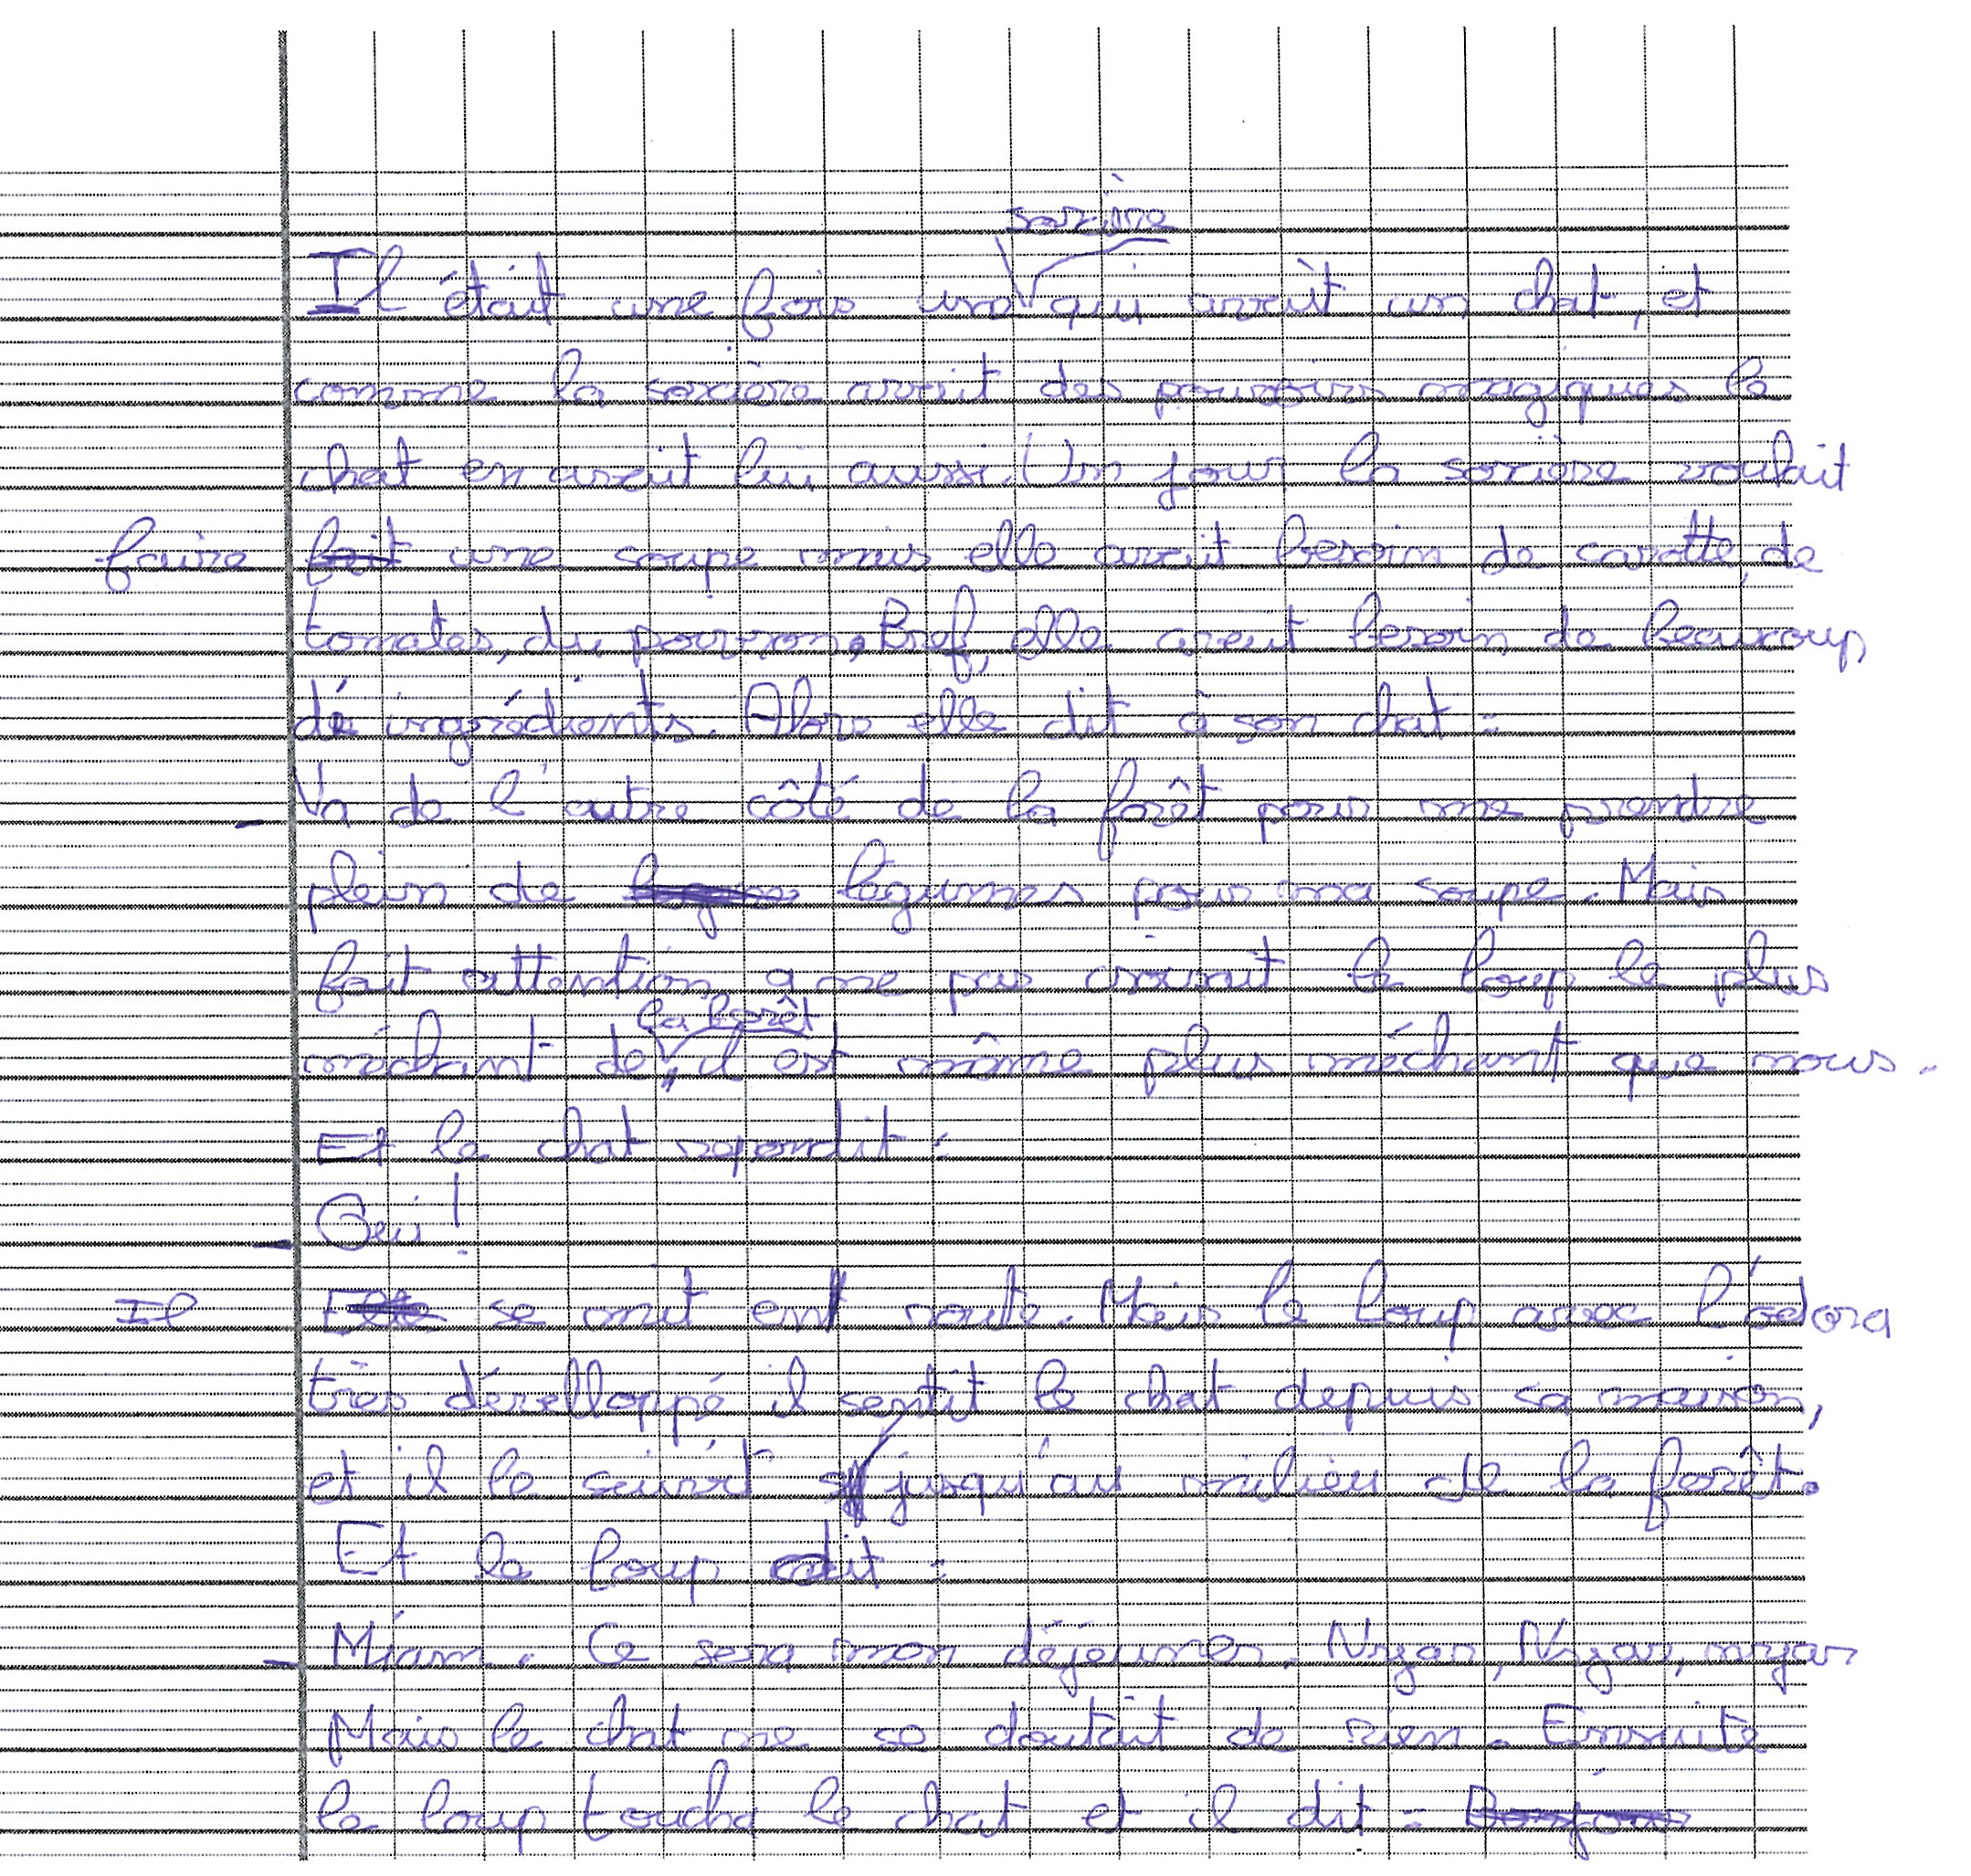 sorcière
Il était une fois une qui avait un chat, et
comme la sorcière avait des pouvoirs magiques le
chat en avait lui aussi. Un jour la sorcière voulait
faire fait une soupe mais elle avait besoin de carotte, de
tomates, du poivron. Bref, elle avait besoin de beaucoup
de ingrédients. Alors elle dit à son chat :
- Va de l'autre côté de la forêt pour me prendre
plein de légumes pour ma soupe. Mais
fait attention a ne pas croisait le loup le plus
la forêt
méchant de, il est même plus méchant que nous.
Et le chat repondit :
- Oui !
Il Elle se mit en route. Mais le loup avec l'odora
très dévelloppé il sentit le chat depuis sa maison,
et il le suivit jusqu'au milieu de la forêt.
Et le loup dit :
- Miam. Ce sera mon déjeuner. Nyar, Nyar, nyar
Mais le chat ne se doutait de rien. Ensuite
le loup toucha le chat et il dit : Bonjour